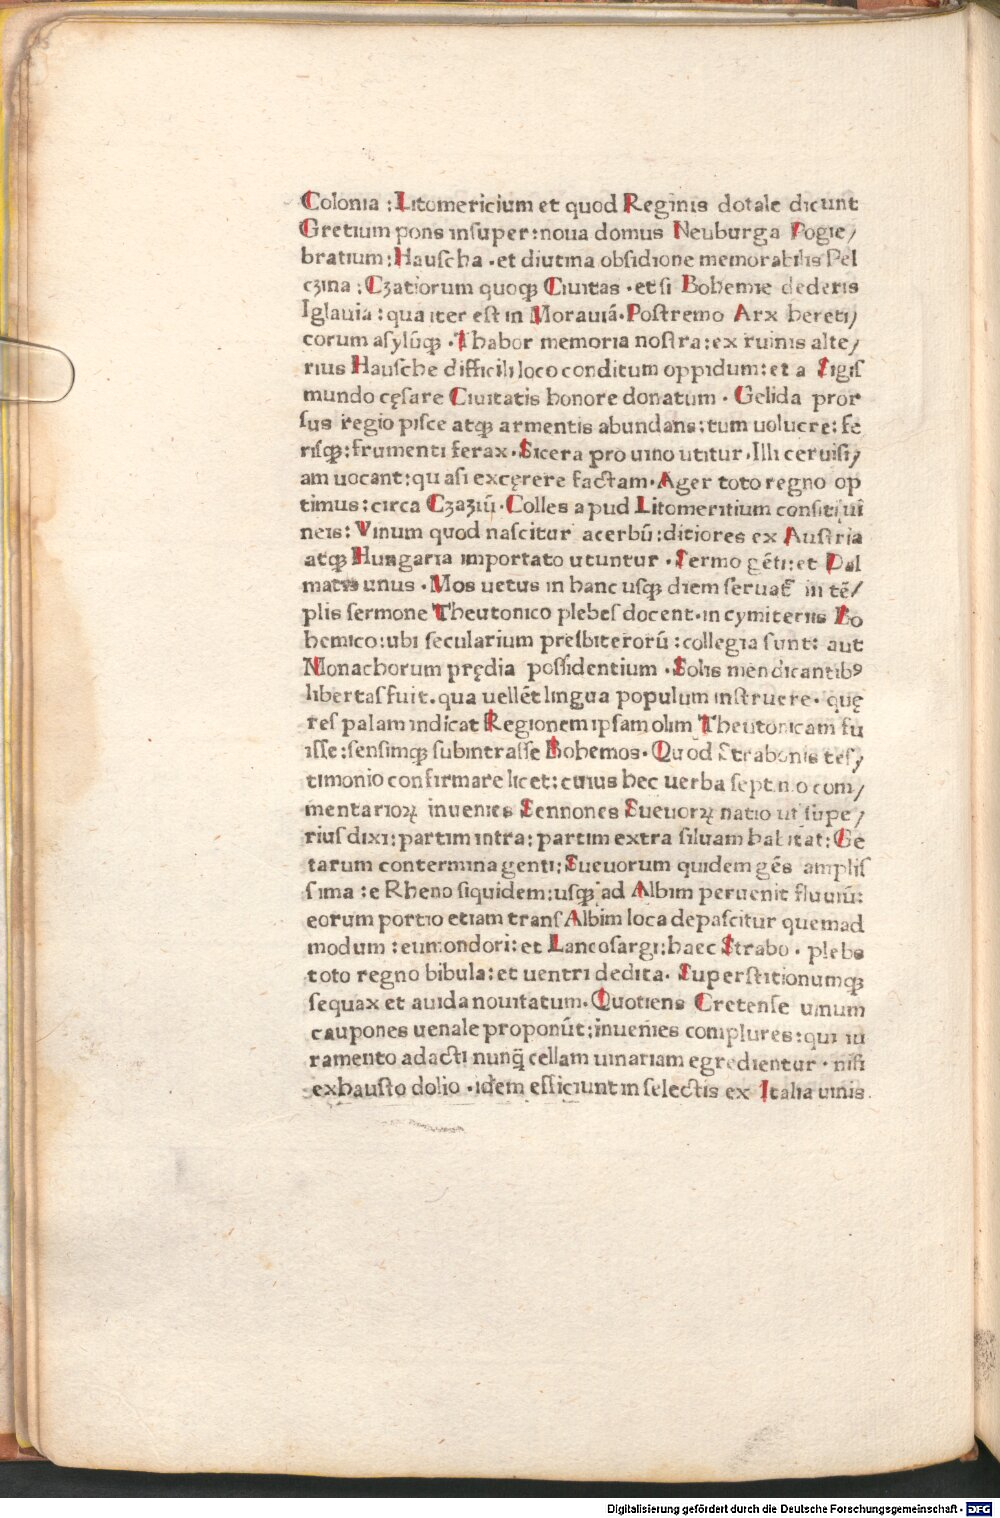 Colonia : Litomericium et quod Reginis dotale dicunt
Gretium pons insuper : noua domus Neuburga Pogie/
bratium : Hauscha . et diutina obsidione memorabilis Pel
czina : Czatiorum quoqꝫ Ciuitas . et si Bohemie dederis
Iglauia : qua iter est in Morauiā . Postremo Arx hereti/
corum asylūqꝫ . Thabor memoria nostra : ex ruinis alte/
rius Hausche difficili loco conditum oppidum : et a Sigis
mundo cęsare Ciuitatis honore donatum . Gelida pror
sus regio pisce atqꝫ armentis abundans : tum uolucre : fe
risqꝫ : frumenti ferax . Sicera pro uino utitur . Illi ceruisi/
am uocant : quasi excęrere factam . Ager toto regno op
timus : circa Czaziū . Colles apud Litomeritium consiti ui
neis : Vinum quod nascitur acerbū : ditiores ex Austria
atqꝫ Hungaria importato utuntur . Sermo gēti : et Dal
matis unus . Mos uetus in hanc usqꝫ diem seruat̄ in tē/
plis sermone Theutonico plebes docent . in cymiteriis Bo
hemico : ubi secularium presbiterorū : collegia sunt : aut
Monachorum prędia possidentium . Solis mendicantibꝰ
libertas fuit . qua uellēt lingua populum instruere . quę
res palam indicat Regionem ipsam olim Theutonicam fu
isse : sensimqꝫ subintrasse Bohemos . Quod Strabonis tes/
timonio confirmare licet : cuius hec uerba septimo com/
mentarioꝝ inuenies Sennones Sueuoꝝ natio ut supe/
rius dixi : partim intra : partim extra siluam habitat : Ge
tarum contermina genti : Sueuorum quidem gēs amplis
sima : e Rheno siquidem : usqꝫ ad Albim peruenit fluuiū :
eorum portio etiam trans Albim loca depascitur quemad
modum : eumondori : et Lancosargi : haec Strabo . plebs
toto regno bibula : et uentri dedita . Superstitionumqꝫ
sequax et auida nouitatum . Quotiens Cretense uinum
caupones uenale proponūt : inueīes complures : qui iu
ramento adacti nunq̄ cellam uinariam egredientur . nisi
exhausto dolio . idem efficiunt in selectis ex Italia uinis .
Digitalisierung gefördert durch die Deutsche Forschungsgemeinschaft - DFG